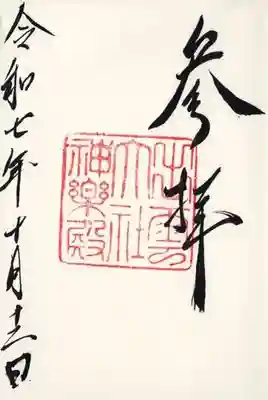 参拜
出雲
大社
神楽殿
令和七年十月十一日